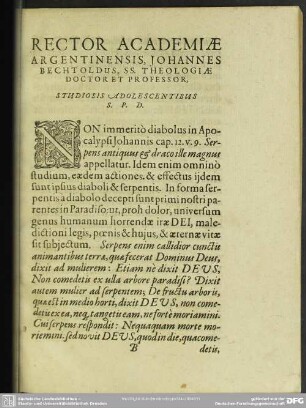 RECTOR ACADEMIÆ
ARGENTINENSIS, JOHANNES
BECHTOLDUS, SS. THEOLOGIÆ
DOCTOR ET PROFESSOR,
STUDIOSIS ADOLESCENTIBUS
S. P. D.
NON immeritò diabolus in Apo-
calypsi Johannis cap. 12. v. 9. Ser-
pens antiquus & draco ille magnus
appellatur. Idem enim omninò
studium, eædem actiones, & effectus ijdem
sunt ipsius diaboli & serpentis. In forma ser-
pentis à diabolo decepti sunt primi nostri pa-
rentes in Paradiso: ut, proh dolor, universum
genus humanum horrendæ iræ DEI, male-
dictioni legis, pœnis & hujus, & æternæ vitæ
sit subjectum. Serpens enim callidior cunctis
animantibus terræ, quæ fecerat Dominus Deus,
dixit ad mulierem: Etiam ne dixit DEUS,
Non comedetis ex ulla arbore paradisi? Dixit
autem mulier ad serpentem: De fructu arboris,
quæ est in medio horti, dixit DEUS, non come-
detis ex ea, neq, tangetis eam, ne fortè moriamini.
Cui serpens respondit: Nequaquam morte mo-
riemini. sed novit DEUS, quod in die, qua come-
B detis,